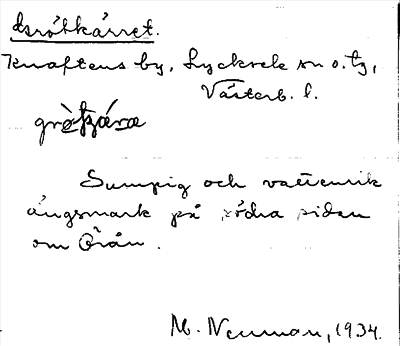 Gsrötkärret.
Knaftens by, Lycksele sn o. tg,
Västerb. l.
Sumpig och vattenrik
ängsmark på södra sidan
om Örån.
M. Neuman, 1934.